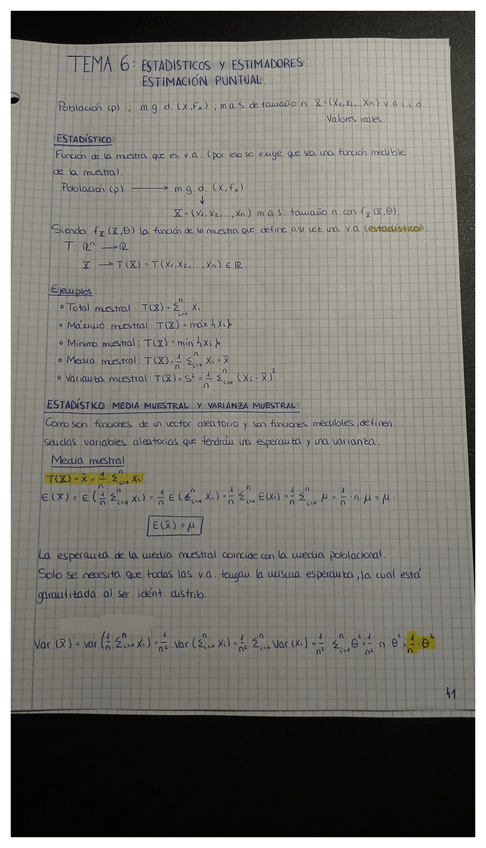 TEMA 6: ESTADISTICOS Y ESTIMADORES
ESTIMACIÓN PUNTUAL
Población (p) ; m.g.d. (X, Fx) ; m.a.s. de tamaño n X=(X1,X2, Xn) v.a.i.i.d.
Valores reales
ESTADÍSTICO
Función de la muestra que es v.a. (por eso se exige que sea una función medible
de la muestra).
Población (p) → m.g.d. (X, fx)
↓
X=(X1, X2, ,Xn) m.a.s. tamaño n con fx(x,θ)
Siendo fx(x,θ) la función de la muestra que define a su vez una v.a (estadístico)
T: ℝⁿ → ℝ
X → T(X)=T(X1,X2, ,Xn) ∈ ℝ.
Ejemplos:
o Total muestral: T(X)=Σⁿᵢ₌₁ Xi
o Máximo muestral: T(X)=máx{Xi}
o Mínimo muestral: T(X)=min{Xi}
o Media muestral: T(X)=1/n Σⁿᵢ₌₁ Xi = x̄
o Varianza muestral: T(X)=S²=1/n Σⁿᵢ₌₁ (Xi - x̄)²
ESTADÍSTICO MEDIA MUESTRAL Y VARIANZA MUESTRAL
Como son funciones de un vector aleatorio y son funciones medibles, definen
sendas variables aleatorias que tendrán una esperanza y una varianza.
Media muestral
T(X)=x̄=1/n Σⁿᵢ₌₁ Xi
E(x̄)=E(1/n Σⁿᵢ₌₁ Xi)=1/n E(Σⁿᵢ₌₁ Xi)=1/n Σⁿᵢ₌₁ E(Xi)=1/n Σⁿᵢ₌₁ μ=1/n·n·μ=μ.
E(x̄)=μ
La esperanza de la media muestral coincide con la media poblacional.
Solo se necesita que todas las v.a. tengan la misma esperanza, la cual está
garantitada al ser ident. distrib.
Var(x̄)=var(1/n Σⁿᵢ₌₁ Xi)=1/n² var(Σⁿᵢ₌₁ Xi)=1/n² Σⁿᵢ₌₁ Var(Xi)=1/n² Σⁿᵢ₌₁ θ²=1/n²·n·θ²=1/n·θ²
41